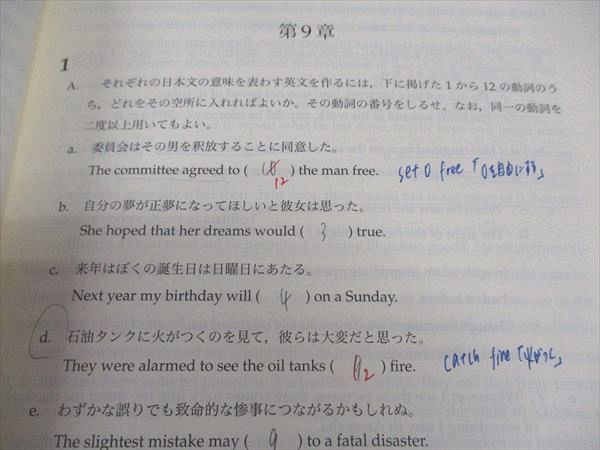 第9章
1
A. それぞれの日本文の意味を表わす英文を作るには，下に掲げた1から12の動詞のう
ち，どれをその空所に入れればよいか。その動詞の番号をしるせ。なお，同一の動詞を
二度以上用いてもよい。
a. 委員会はその男を釈放することに同意した。
The committee agreed to ( ) the man free. set O free 「Oを自由にする」
12
b. 自分の夢が正夢になってほしいと彼女は思った。
She hoped that her dreams would ( 3 ) true.
c. 来年はぼくの誕生日は日曜日にあたる。
Next year my birthday will ( 4 ) on a Sunday.
d. 石油タンクに火がつくのを見て，彼らは大変だと思った。
They were alarmed to see the oil tanks ( 2 ) fire. catch fire 「火がつく」
e. わずかな誤りでも致命的な惨事につながるかもしれぬ。
The slightest mistake may ( 9 ) to a fatal disaster.